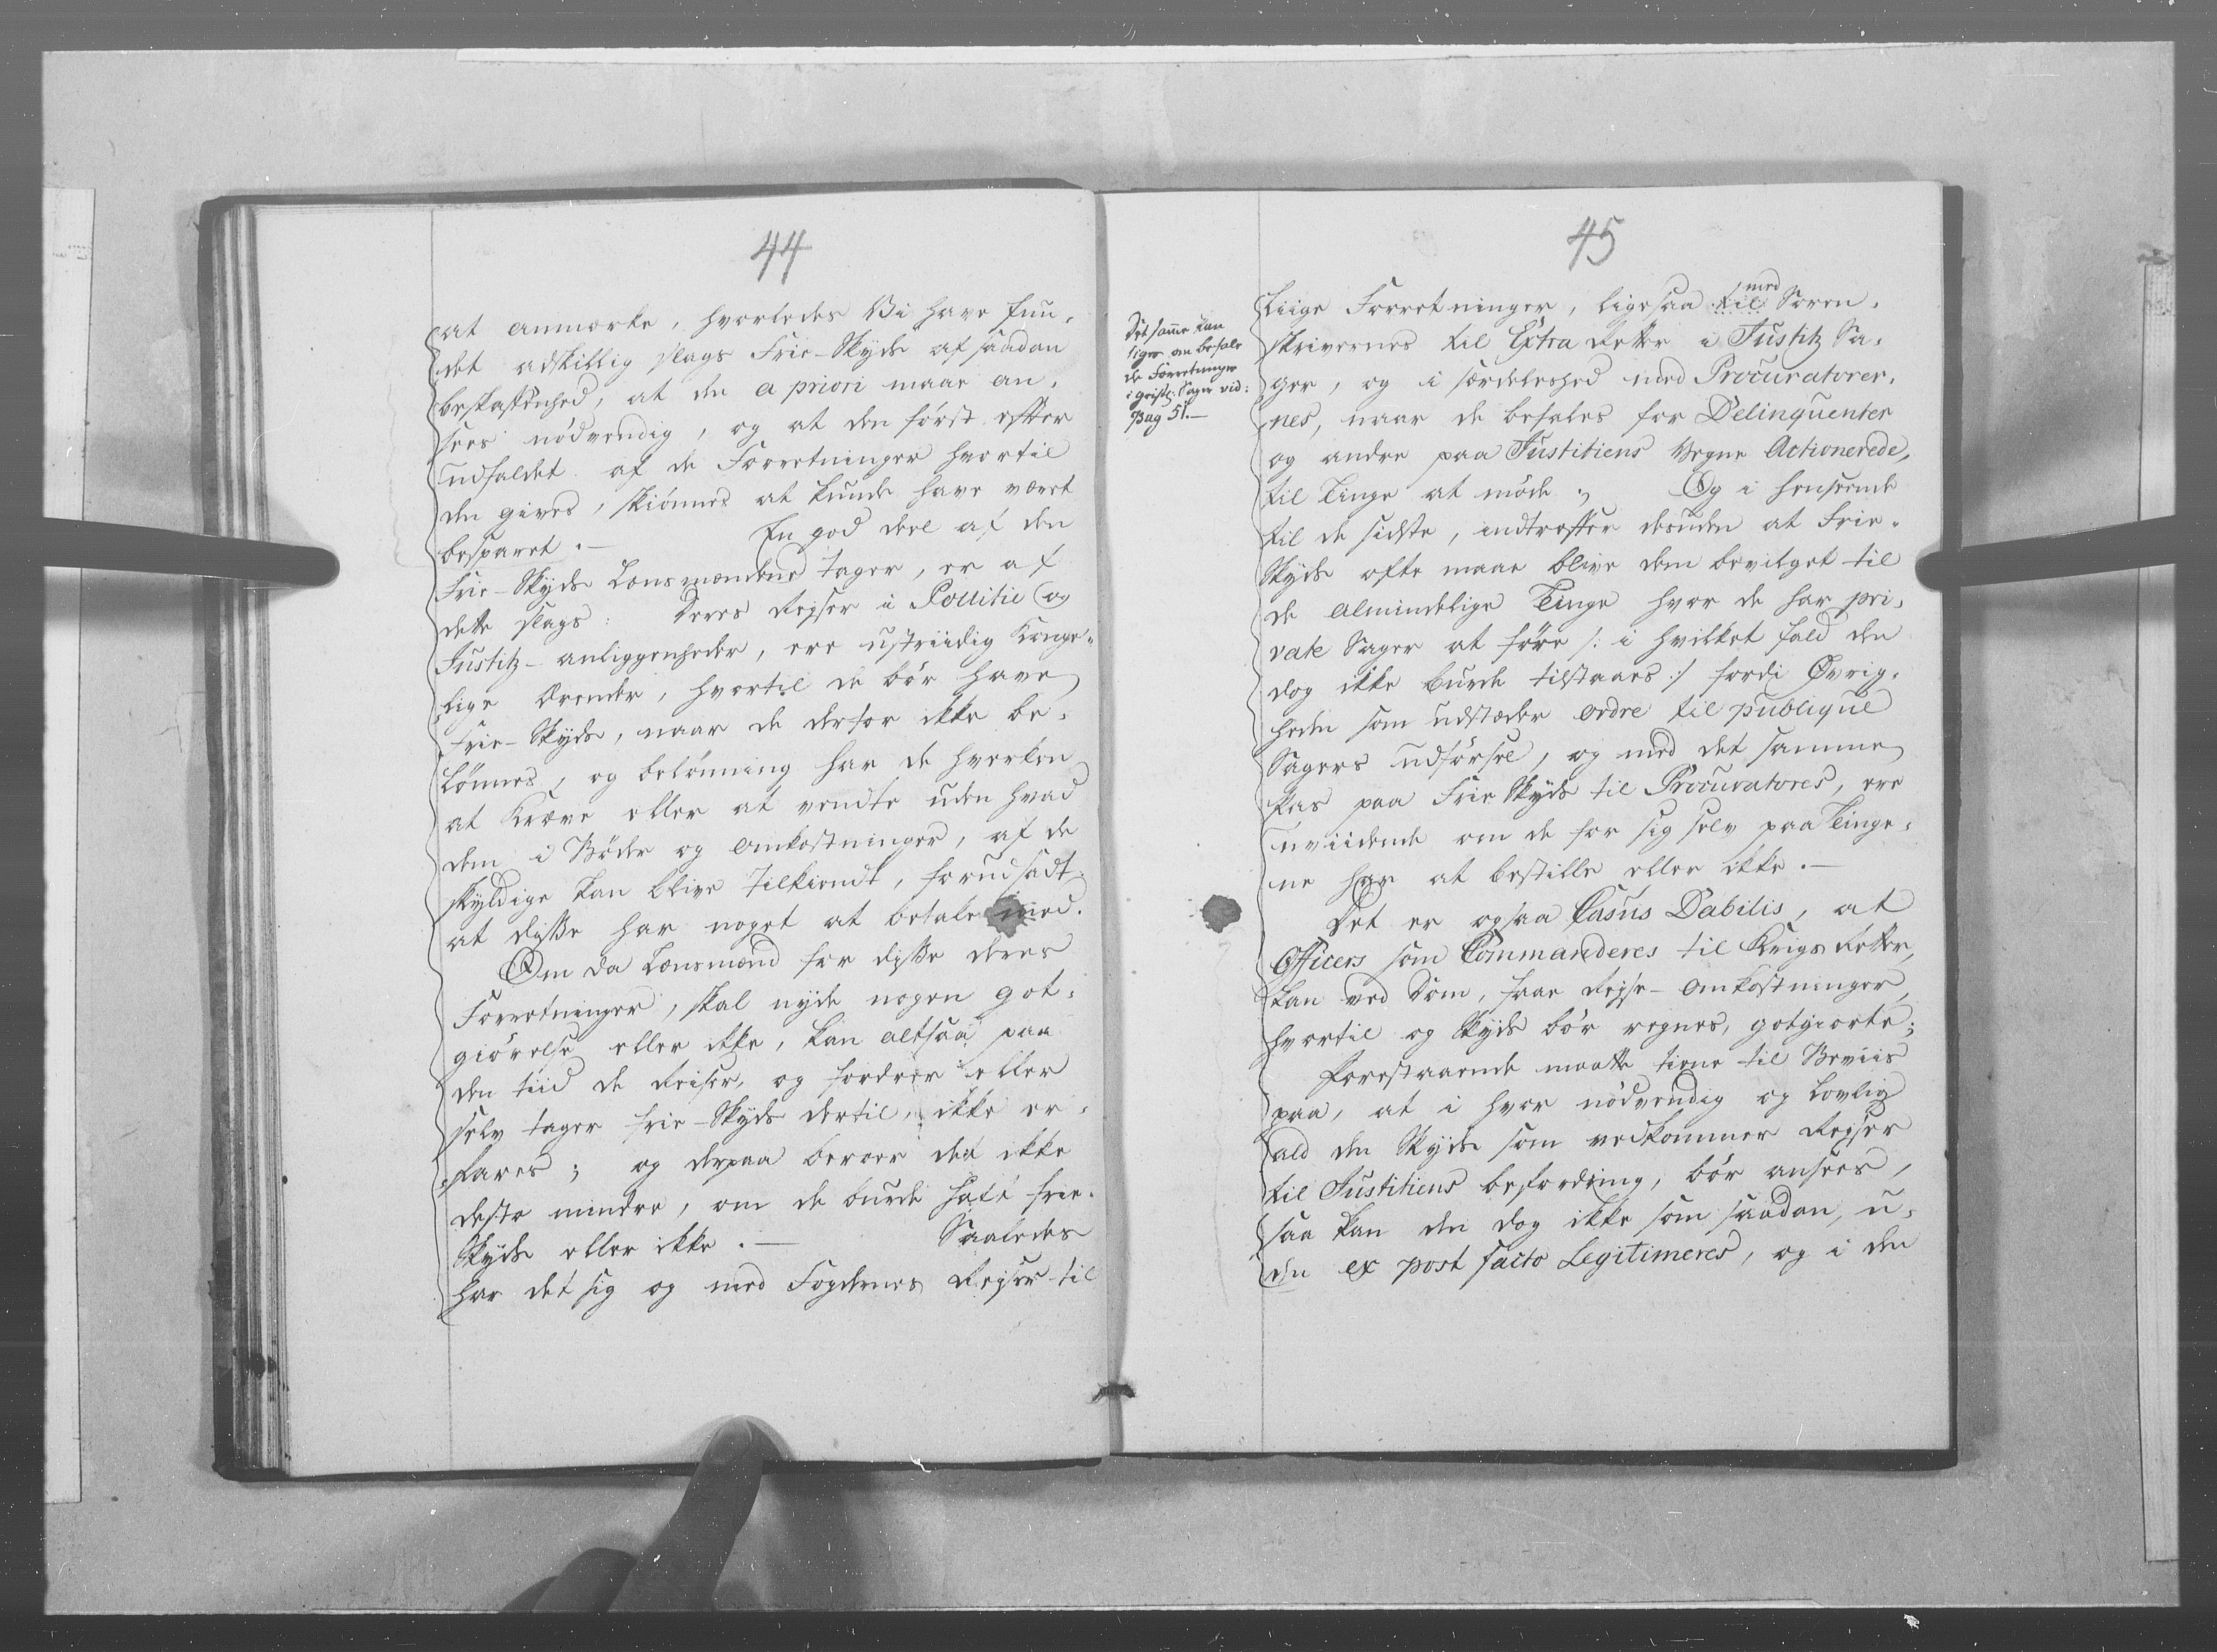 44
at anmærke, hvorledes Vi have fun-
det adskillig slags Frie-Skyds af saadan
beskaffenhed, at den a priori maae an-
sees nödvendig, og at den först efter
udfaldet af de Forretninger hvortil
den gives, skiönnes at kunde have været
besparet.— En god deel af den
Frie-Skyds Lensmændene tager, er af
dette slags: Deres Rejser i Pollitie og
Justitz-anliggenheder, ere ustriidig Konge-
lige Ærender, hvortil de bör have
frie-Skyds, naar de derfor ikke be-
lönnes, og belönning har de hverken
at kræve eller at vendte uden hvad
dem i Böder og Omkostninger, af de
skyldige kan blive tilkiendt, forudsadt
at disse har noget at betale med.
Om da Lensmænd for disse deres
Forretninger, skal nyde nogen got-
giörelse eller ikke, kan altsaa paa
den tiid de Reiser, og fordrer eller
selv tager frie-Skyds dertil, ikke er-
fares; og derpaa beroer det ikke
desto mindre, om de burde have frie-
Skyds eller ikke.— Saaledes
har det sig og med Fogdernes Rejser til
45
Det samme kan
siges om befale
de Forretninger
i geistl: Sager vid:
Pag 51.—
Liige Forretninger, ligesaa til med Soren-
skrivernes til Extra Retter i Justitz Sa-
ger, og i særdeleshed med Procuratorer-
nes, naar de befales for Delinquenter
og andre paa Justitiens Vegne Actionerede,
til Tinge at möde; Og i henseende
til de sidste, indtreffer desuden at Frie-
Skyds ofte maae blive dem bevilget til
de almindelige Tinge hvor de har pri-
vate Sager at före /: i hvilket fald den
dog ikke burde tilstaaes :/ fordi Övrig-
heden som udstæder ordre til publique
Sagers udförsel, og med det samme
Pas paa Frie Skyds til Procuratores, ere
uviidende om de for sig selv paa Tinge-
ne har at bestille eller ikke.—
Det er ogsaa Casus Dabilis, at
Officers som Commanderes til Krigs Retter,
kan ved Dom, faae Rejse-Omkostninger,
hvortil og Skyds bör regnes, gotgiorte;
Forestaaende maatte tiene til Beviis
paa, at i hvor nödvendig og lovlig
ald den Skyds som vedkommer Rejser
til Justitiens befordring, bör ansees,
saa kan den dog ikke som saadan, u-
den ex post facto Legitimeres, og i den